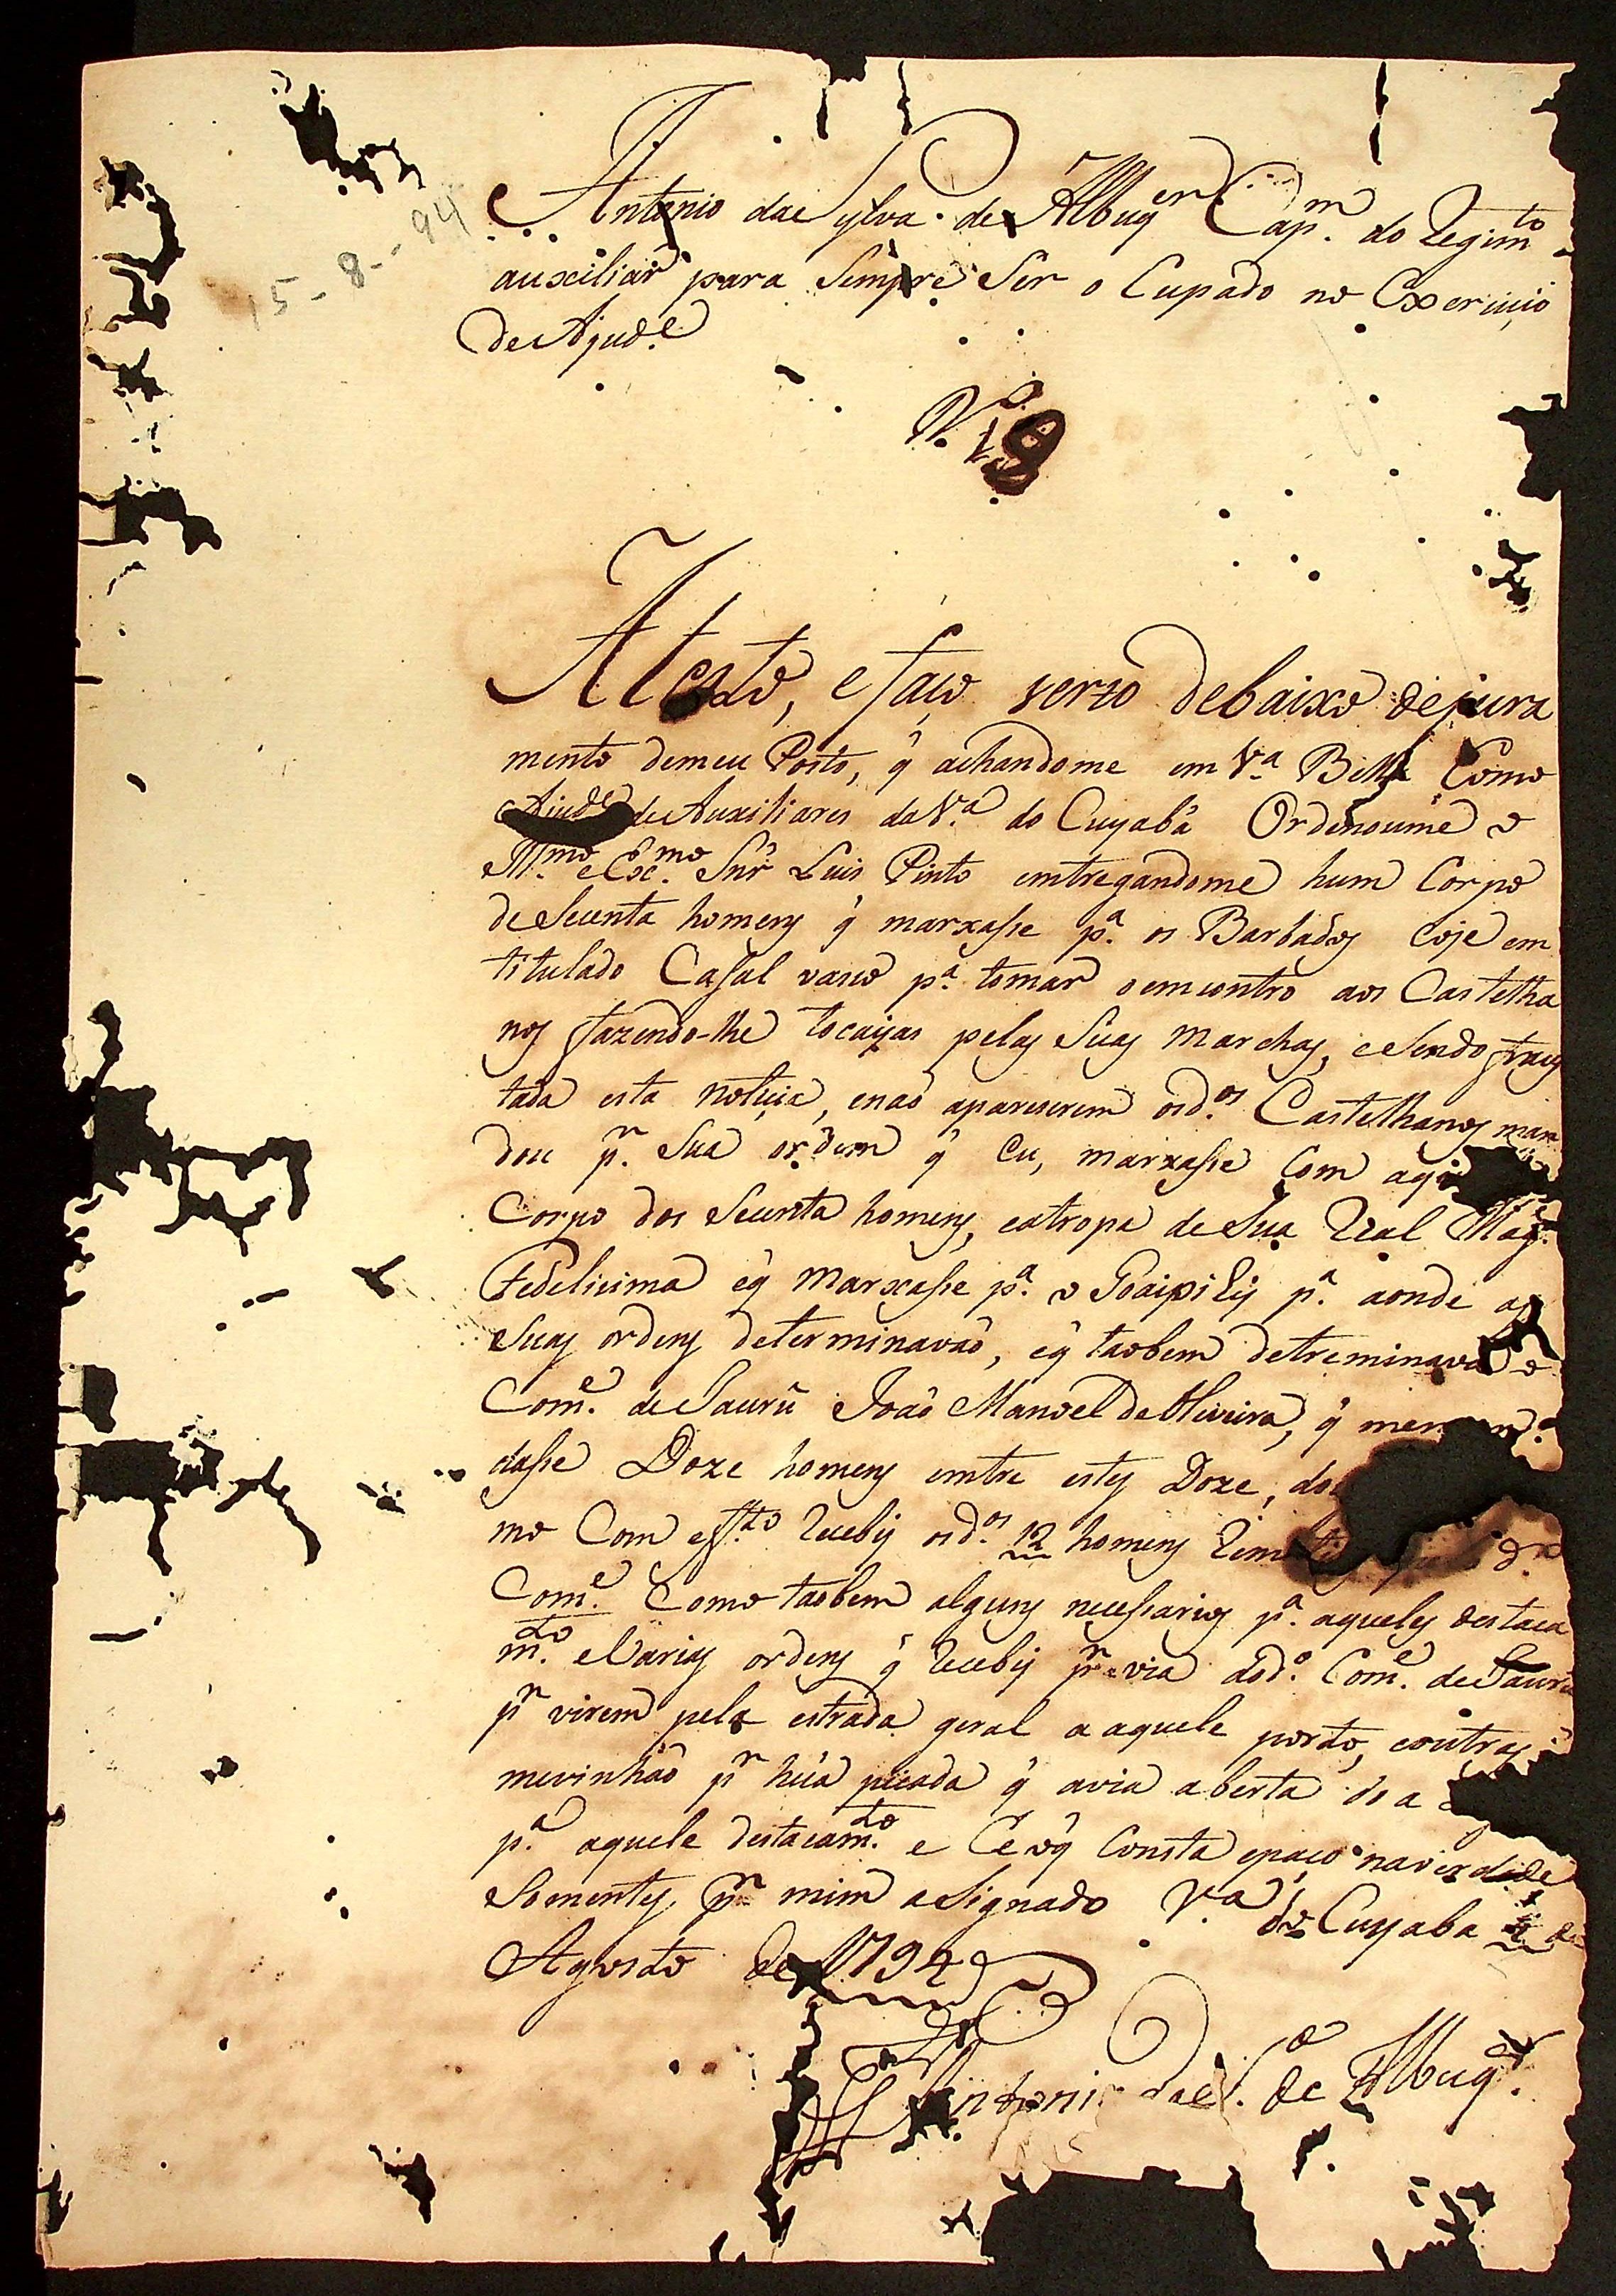 15-8--94
Antonio da Sylva de Albuqr Capm. do Regimto
auxiliar para Sempre Ser o Cupado no Exerciçio
de Ajude
N.
Atesto, e faço serto debaixo de jura
mento demeu Posto, q̂ achandome em Va Bella Como
Ajude de Auxiliares da Va do Cuyabá Ordenoume o
Illmo e Exmo Snr̂ Luis Pinto emtregandome hum Corpo
de Secenta homeñs q̂ marxasse pa os Barbados oje em
titulado Casal vasco pa tomar o emcontro aos Castelha
nos fazendo-lhe tocayas pelas Suas marchas, e Sendo
tada esta notiçia, enaõ aparecerem osdos Castelhanos man
dou pr Sua ordem q̂ Eu, marxasse Com
Corpo dos Secenta homeñs, eatropa de Sua Real Mage
Fedelicima eq̂ Marxasse pa o pa aonde as
Suas ordeñs determinavaõ, eq̂ taobem detreminava o
Come de Jaurú Joaõ Manoel de Oliveira, q̂
dasse Doze homeñs emtre estes Doze,
mo Com effto Recebÿ osdos 12 homeñs do
Come Como taobem alguñs necessarios pa aqueles destaca
mto e Varias ordeñs q̂ Recebÿ pr via dodo Come de Jaurú
pr virem pela estrada geral a aquele porto, eoutras
mevinhaõ pr huã picada q̂ avia aberta
pa aquele destacamto e He oq̂ Consta epaço naverdade
Somente, pr mim aSignado Va do Cuyaba de
Agosto de 1794
Antonio da Sa de Albuqr.